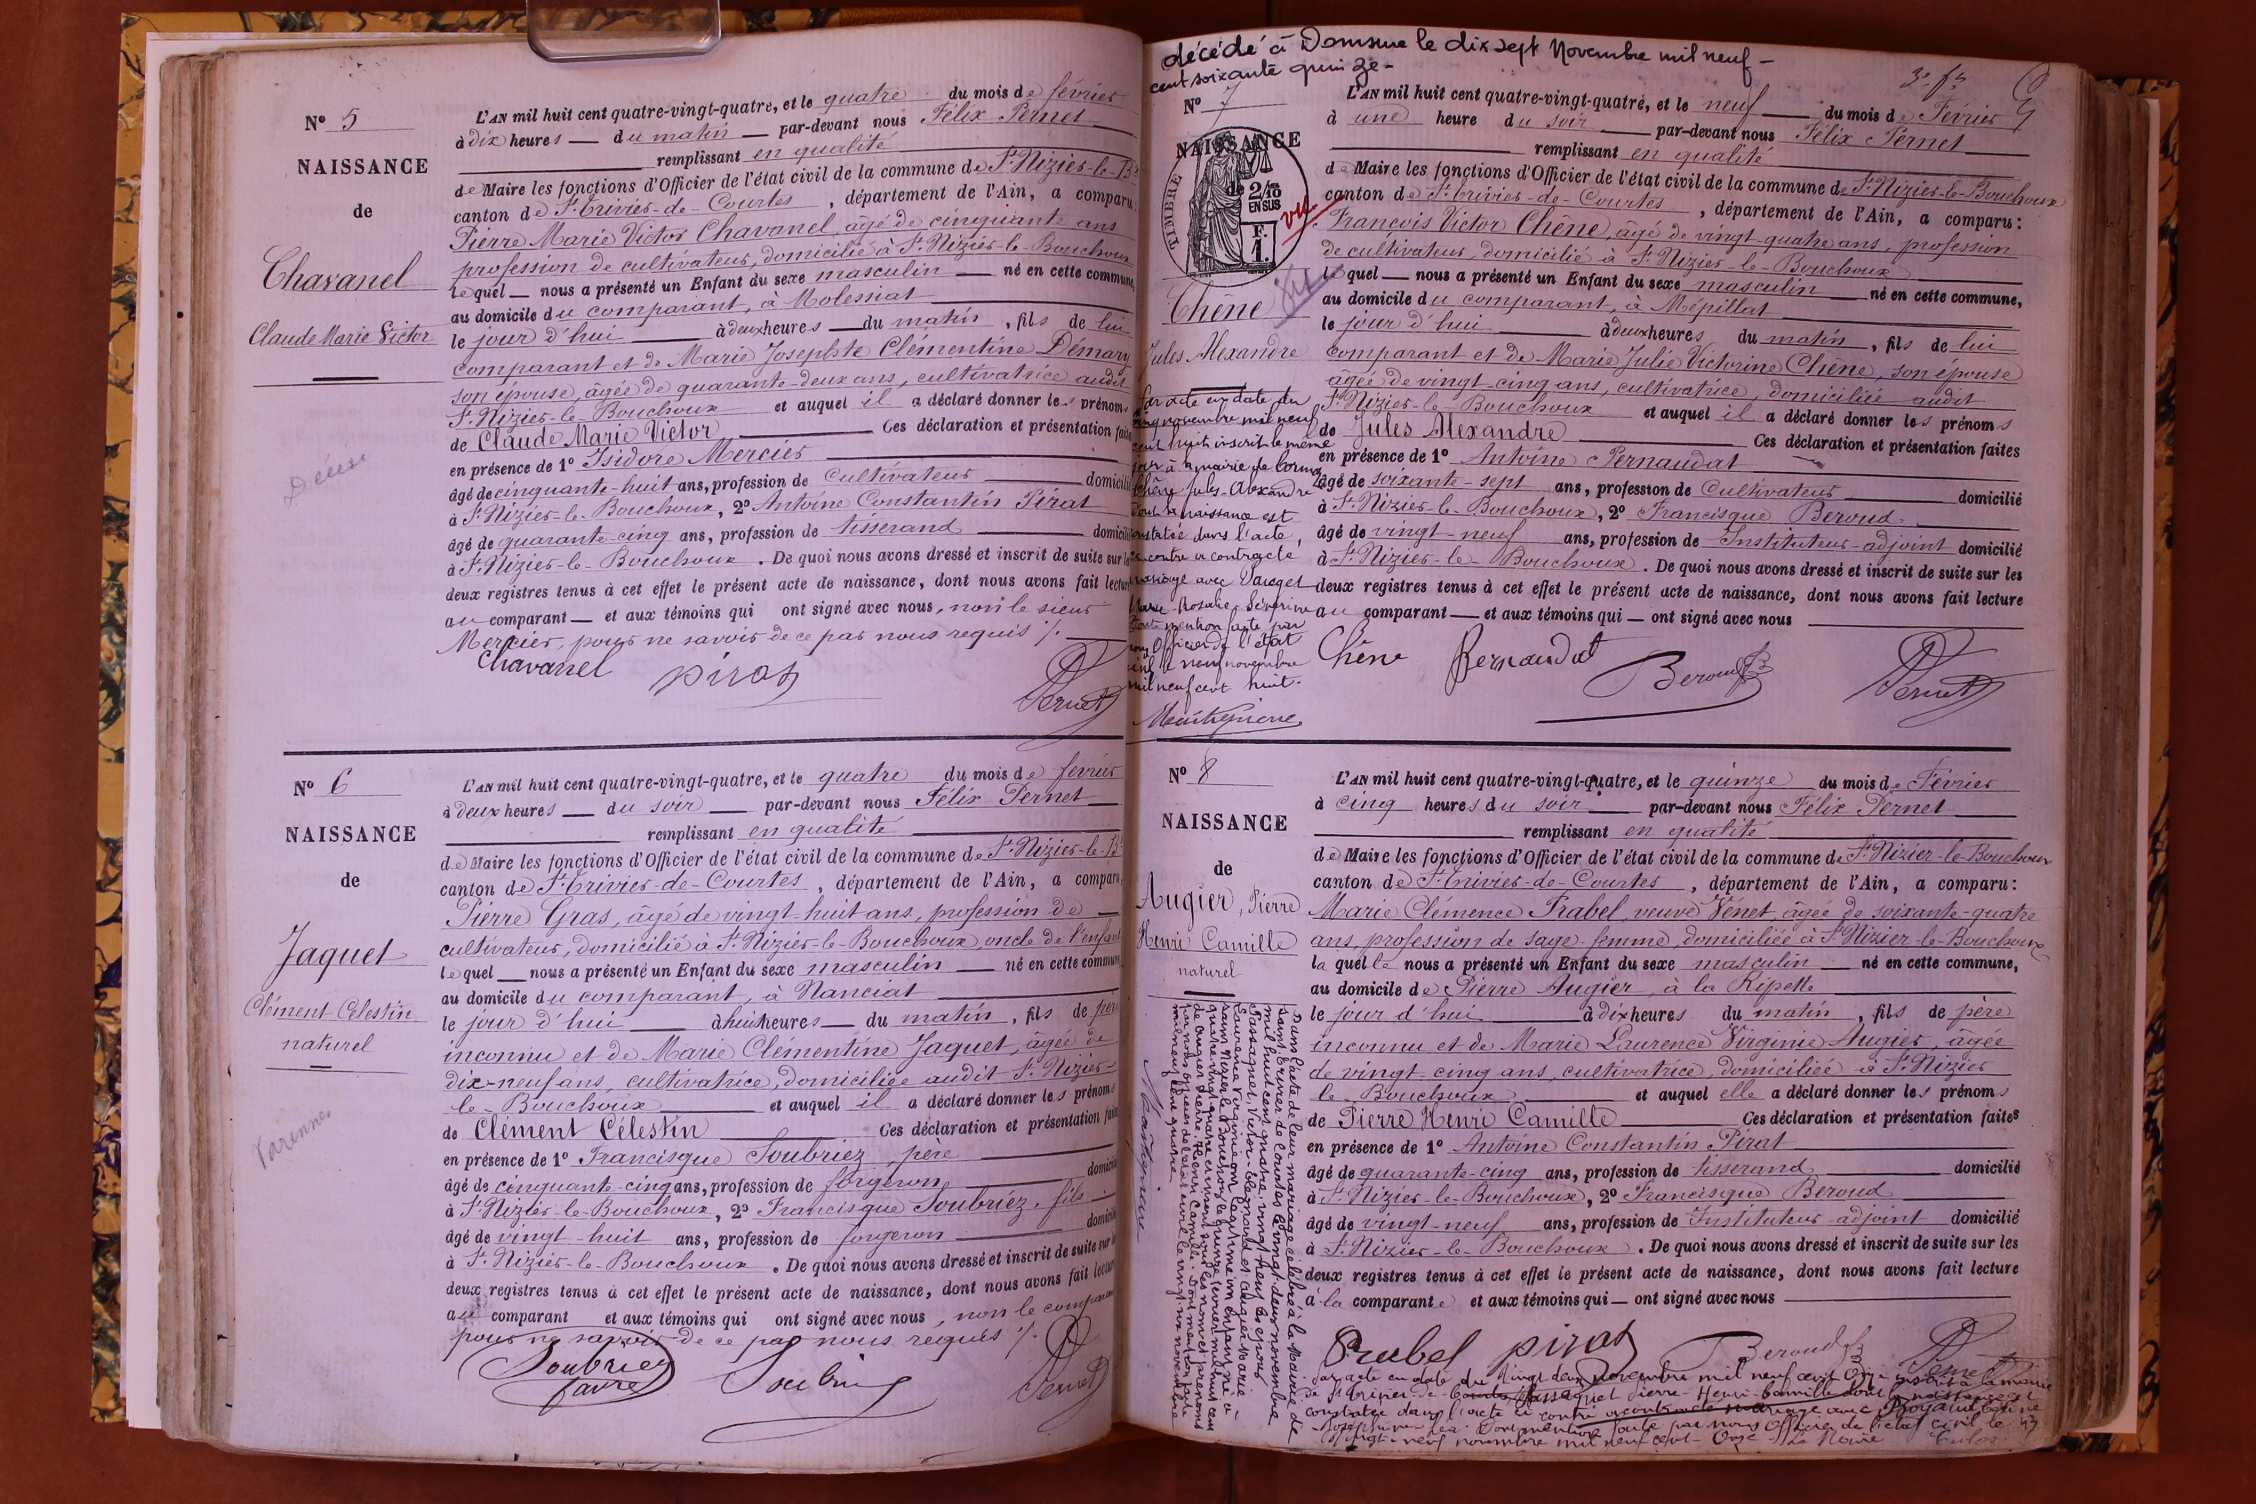 N° 5
NAISSANCE
de
Chavanel
Claude Marie Victor
L'AN mil huit cent quatre-vingt-quatre, et le quatre du mois de février
à dix heures du matin par-devant nous Félix Pernet
remplissant en qualité
de Maire les fonctions d'Officier de l'état civil de la commune de St Nizier-le-Bx
canton de St Trivier-de-Courtes, département de l'Ain, a comparu:
Pierre Marie Victor Chavanel, âgé de cinquante ans
profession de cultivateur, domicilié à St Nizier-le-Bouchoux
lequel nous a présenté un Enfant du sexe masculin né en cette commune,
au domicile du comparant, à Molessiat
le jour d'hui à deux heures du matin, fils de lui
comparant et de Marie Josephte Clémentine Démary
son épouse, âgée de quarante-deux ans, cultivatrice audit
St Nizier-le-Bouchoux et auquel il a déclaré donner les prénoms
de Claude Marie Victor Ces déclaration et présentation faites
en présence de 1° Isidore Mercier
âgé de cinquante-huit ans, profession de Cultivateur domicilié
à St Nizier-le-Bouchoux, 2° Antoine Constantin Pirat
âgé de quarante-cinq ans, profession de tisserand domicilié
à St Nizier-le-Bouchoux. De quoi nous avons dressé et inscrit de suite sur les
deux registres tenus à cet effet le présent acte de naissance, dont nous avons fait lecture
au comparant et aux témoins qui ont signé avec nous, non le sieur
Mercier, pour ne savoir de ce par nous requis ./.
Chavanel Pirat Pernet
N° 6
NAISSANCE
de
Jaquet
Clément Célestin
naturel
Varennes
L'AN mil huit cent quatre-vingt-quatre, et le quatre du mois de février
à deux heures du soir par-devant nous Félix Pernet
remplissant en qualité
de Maire les fonctions d'Officier de l'état civil de la commune de St Nizier-le-Bx
canton de St Trivier-de-Courtes, département de l'Ain, a comparu
Pierre Gras, âgé de vingt-huit ans, profession de
cultivateur, domicilié à St Nizier-le-Bouchoux oncle de l'enfant
lequel nous a présenté un Enfant du sexe masculin né en cette commune
au domicile du comparant, à Nanciat
le jour d'hui à huit heures du matin, fils de père
inconnu et de Marie Clémentine Jaquet, âgée de
dix-neuf ans, cultivatrice, domiciliée audit St Nizier-
le-Bouchoux et auquel il a déclaré donner les prénoms
de Clément Célestin Ces déclaration et présentation faites
en présence de 1° Francisque Soubriez, père
âgé de cinquante-cinq ans, profession de forgeron domicilié
à St Nizier-le-Bouchoux, 2° Francisque Soubriez, fils
âgé de vingt-huit ans, profession de forgeron domicilié
à St Nizier-le-Bouchoux. De quoi nous avons dressé et inscrit de suite sur les
deux registres tenus à cet effet le présent acte de naissance, dont nous avons fait lecture
au comparant et aux témoins qui ont signé avec nous, non le comparant
pour ne savoir de ce par nous requis ./.
Soubriez Pernet
décédé à Domsure le dix sept Novembre mil neuf
cent soixante quinze
N° 7
NAISSANCE
TIMBRE
2/10 EN SUS
F. 1.
vu
Chêne
Jules Alexandre
Par acte en date du
cinq novembre mil neuf
cent huit inscrit le même
jour à la mairie de Cormoz
Chêne Jules-Alexandre
dont la naissance est
constatée dans l'acte,
ci-contre a contracté
mariage avec
Marie-Rosalie-Séverine
Dont mention faite par
nous Officier de l'état
civil le neuf novembre
mil neuf cent huit.
L'AN mil huit cent quatre-vingt-quatre, et le neuf du mois de Février
à une heure du soir par-devant nous Félix Pernet
remplissant en qualité
de Maire les fonctions d'Officier de l'état civil de la commune de St Nizier-le-Bouchoux
canton de St Trivier-de-Courtes, département de l'Ain, a comparu:
François Victor Chêne, âgé de vingt-quatre ans, profession
de cultivateur, domicilié à St Nizier-le-Bouchoux
lequel nous a présenté un Enfant du sexe masculin né en cette commune,
au domicile du comparant, à Mépillat
le jour d'hui à deux heures du matin, fils de lui
comparant et de Marie Julie Victorine Chêne, son épouse
âgée de vingt-cinq ans, cultivatrice, domiciliée audit
St Nizier-le-Bouchoux et auquel il a déclaré donner les prénoms
de Jules Alexandre Ces déclaration et présentation faites
en présence de 1° Antoine Pernaudat
âgé de soixante-sept ans, profession de Cultivateur domicilié
à St Nizier-le-Bouchoux, 2° Francisque Beroud
âgé de vingt-neuf ans, profession de Instituteur-adjoint domicilié
à St Nizier-le-Bouchoux. De quoi nous avons dressé et inscrit de suite sur les
deux registres tenus à cet effet le présent acte de naissance, dont nous avons fait lecture
au comparant et aux témoins qui ont signé avec nous
Chêne Bernaudat Beroud Pernet
N° 8
NAISSANCE
de
Augier, Pierre
Henri Camille
naturel
L'AN mil huit cent quatre-vingt-quatre, et le quinze du mois de Février
à cinq heures du soir par-devant nous Félix Pernet
remplissant en qualité
de Maire les fonctions d'Officier de l'état civil de la commune de St Nizier-le-Bouchoux
canton de St Trivier-de-Courtes, département de l'Ain, a comparu:
Marie Clémence Prabel, veuve Vénet, âgée de soixante-quatre
ans, profession de sage-femme, domiciliée à St Nizier-le-Bouchoux
laquelle nous a présenté un Enfant du sexe masculin né en cette commune,
au domicile de Pierre Augier, à la Ripette
le jour d'hui à dix heures du matin, fils de père
inconnu et de Marie Laurence Virginie Augier, âgée
de vingt-cinq ans, cultivatrice, domiciliée à St Nizier
le-Bouchoux et auquel elle a déclaré donner les prénoms
de Pierre Henri Camille Ces déclaration et présentation faites
en présence de 1° Antoine Constantin Pirat
âgé de quarante-cinq ans, profession de tisserand domicilié
à St Nizier-le-Bouchoux, 2° Francisque Beroud
âgé de vingt-neuf ans, profession de Instituteur-adjoint domicilié
à St Nizier-le-Bouchoux. De quoi nous avons dressé et inscrit de suite sur les
deux registres tenus à cet effet le présent acte de naissance, dont nous avons fait lecture
à la comparante et aux témoins qui ont signé avec nous
Prabel Pirat Beroud Pernet
Dans l'acte de leur mariage célébré à la Mairie de
Saint Trivier de Courtes le vingt-deux novembre
mil huit cent quatre-vingt les époux
Passaquet, Victor et Augier Marie
Laurence Virginie ont légitimé un enfant né à
Saint Nizier le Bouchoux le quinze février mil huit cent
quatre vingt quatre et inscrit sous les nom et prénoms
de Augier Pierre Henri Camille. Dont mention faite
par nous officier de l'état civil le vingt novembre
Par acte en date du vingt deux novembre mil neuf cent onze inscrit à la mairie
de St Trivier-de-Courtes Passaquet Pierre-Henri-Camille dont la naissance est
constatée dans l'acte ci contre a contracté mariage avec
Dont mention faite par nous Officier de l'état civil le
vingt-neuf novembre mil neuf cent Onze Le Maire